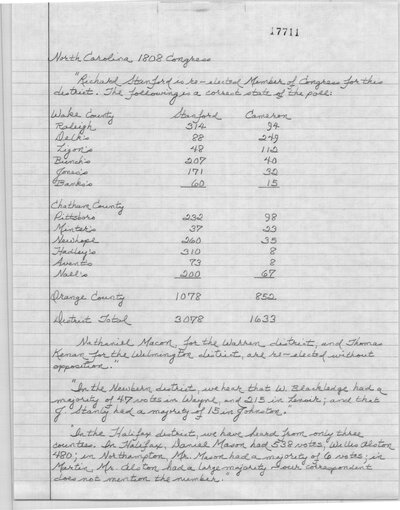 17711
North Carolina 1808 Congress
"Richard Stanford is re-elected Member of Congress for this
district. The following is a correct state of the poll:
Wake County Stanford Cameron
Raleigh 314 94
Delk's 88 249
48 112
Bunch's 207 40
171 32
Banks's 60 15
Chatham County
Pittsboro 232 98
Minter's 37 23
Newhope 260 35
Hadley's 310 8
Avents 73 8
Nall's 200 67
Orange County 1078 852
District Total 3078 1633
Nathaniel Macon, for the Warren district, and Thomas
Kenan for the Wilmington district, are re-elected without
opposition."
"In the Newbern district, we hear that W. Blackledge had a
majority of 47 votes in Wayne, and 215 in Lenoir; and that
J. Stanly had a majority of 15 in Johnston."
"In the Halifax district, we have heard from only three
counties. In Halifax, Daniel Mason had 538 votes, Willis Alston
480; in Northampton, Mr. Mason had a majority of 6 votes; in
Martin, Mr. Alston had a large majority our correspondent
does not mention the number."